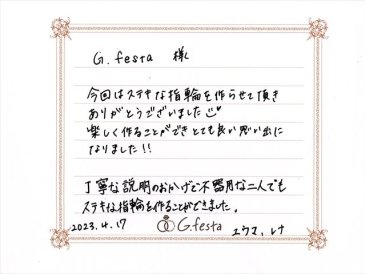 G.festa 様
今回はステキな指輪を作らせて頂き
ありがとうございました
楽しく作ることができとても良い思い出に
なりました!!
丁寧な説明のおかげで不器用な二人でも
ステキな指輪を作ることができました。
2023.4.17
G.festa
ユウマ、レナ